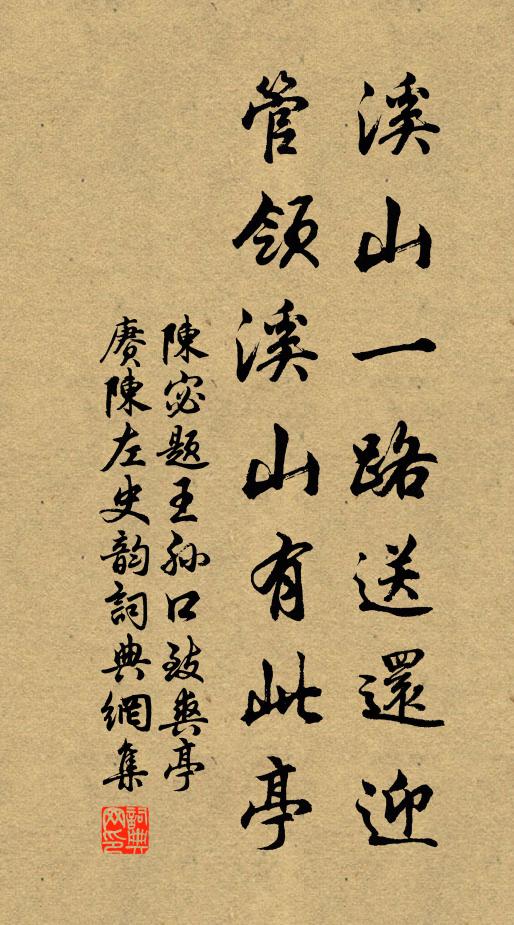 溪山一路送還迎
管領溪山有此亭
陳宓題王孫口致爽亭
賡陳左史韵詞典網集
詞典网印